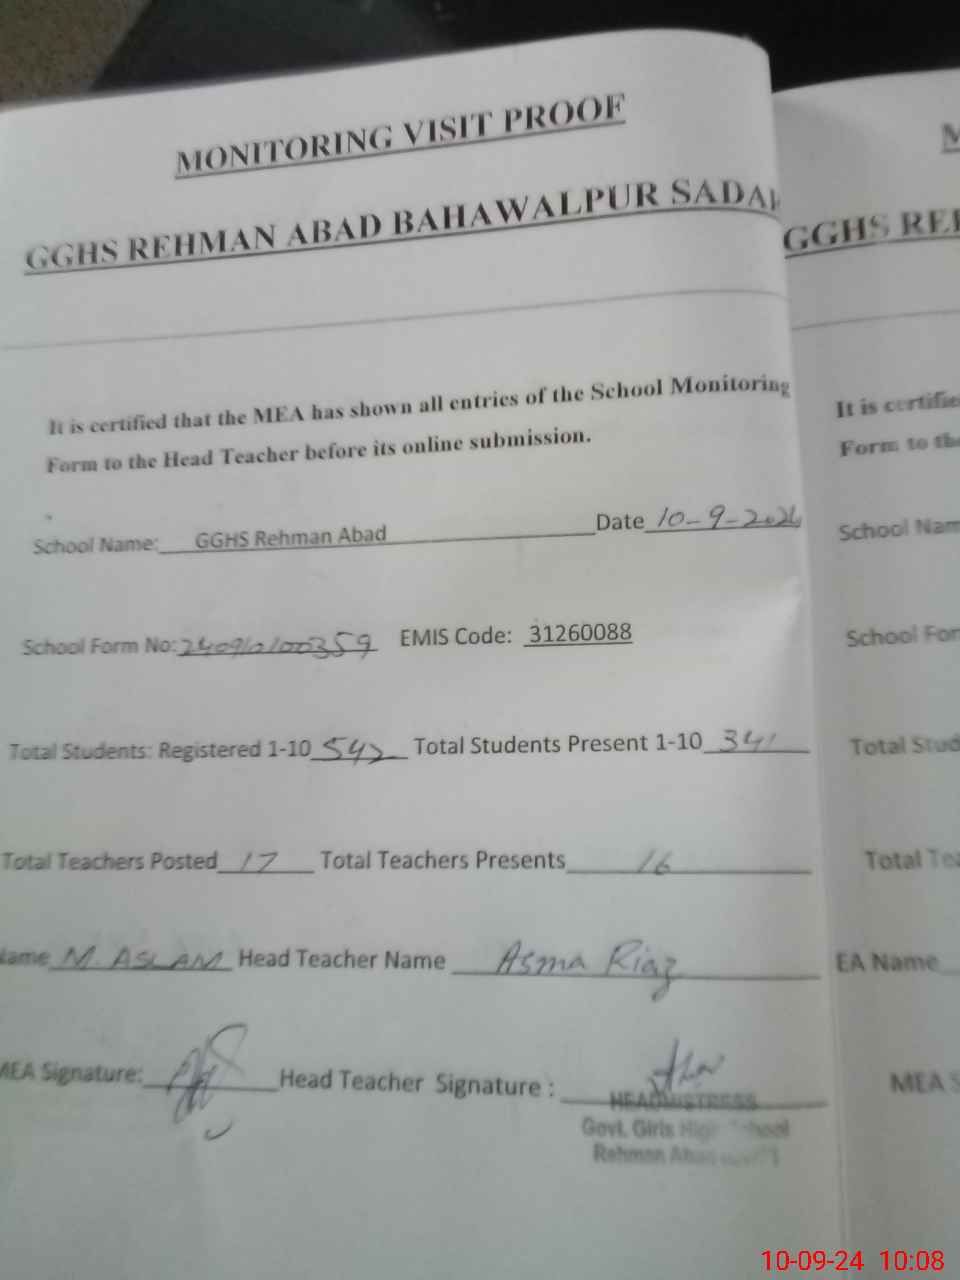 MONITORING VISIT PROOF
GGHS REHMAN ABAD BAHAWALPUR SADAR
It is certified that the MEA has shown all entries of the School Monitoring
Form to the Head Teacher before its online submission.
School Name: GGHS Rehman Abad Date 10-9-2024
School Form No: EMIS Code: 31260088
Total Students: Registered 1-10 542 Total Students Present 1-10 341
Total Teachers Posted 17 Total Teachers Presents 16
Name M. ASLAM Head Teacher Name Asma Riaz
MEA Signature: Head Teacher Signature :
HEADMISTRESS
Govt. Girls High School
Rehman Abad
M
GGHS REH
It is certifie
Form to the
School Nam
School For
Total Stud
Total Tea
EA Name
MEA S
10-09-24 10:08